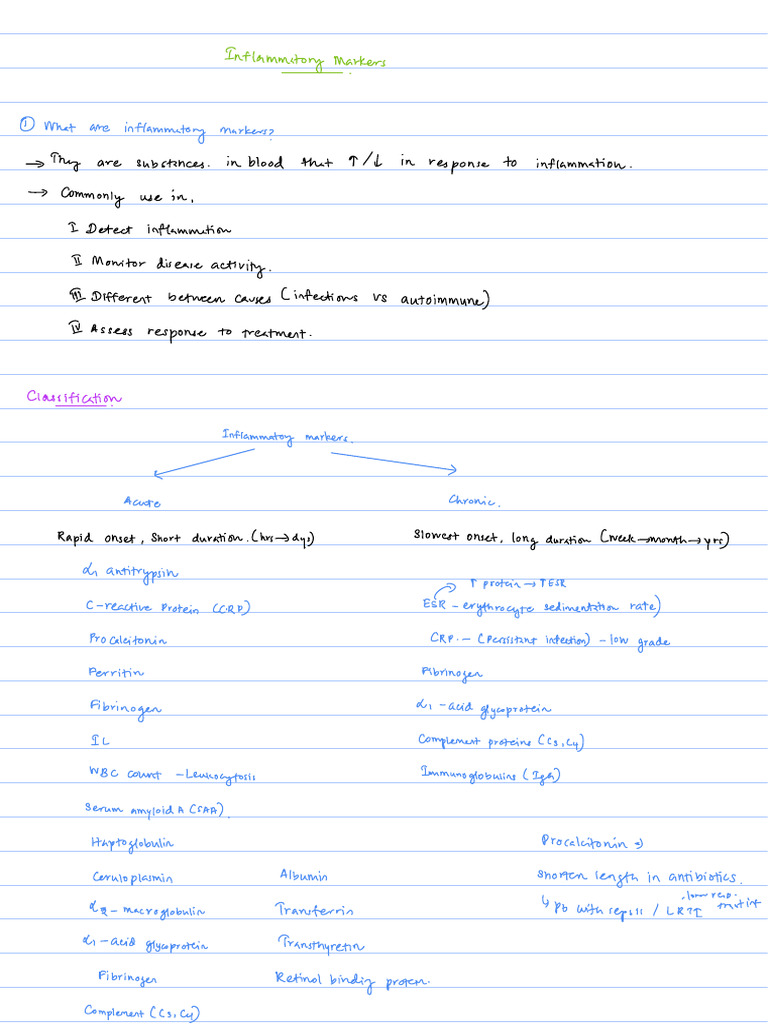 Inflammitory Markers
① What are inflammatory markers?
→ They are substances. in blood that ↑/↓ in response to inflammation.
→ Commonly use in,
I Detect inflammation
II Monitor disease activity.
III Different between causes (infections vs autoimmune)
IV Assess response to treatment.
Classification
Inflammatory markers.
Acute
Chronic.
Rapid onset, Short duration. (hrs→dys)
Slowest onset, long duration (week→month→yrs)
α1 antitrypsin
↑ protein → ↑ ESR
C-reactive Protein (CRP)
ESR - erythrocyte sedimentation rate)
Procalcitonin
CRP. - (Persistant infection) - low grade
Ferritin
Fibrinogen
Fibrinogen
α1 -acid glycoprotein
IL
Complement proteins (C3, C4)
WBC count - Leukocytosis
Immunoglobulins (IgG)
Serum amyloid A (SAA).
Haptoglobulin
Procalcitonin ⇒
Ceruloplasmin
Albumin
Shorten length in antibiotics.
α2 - macroglobulin
Transferrin
↳ Pb with sepsis / LRTI
α1 -acid glycoprotein
Transthyretin
Fibrinogen
Retinol binding protein.
Complement (C3, C4)